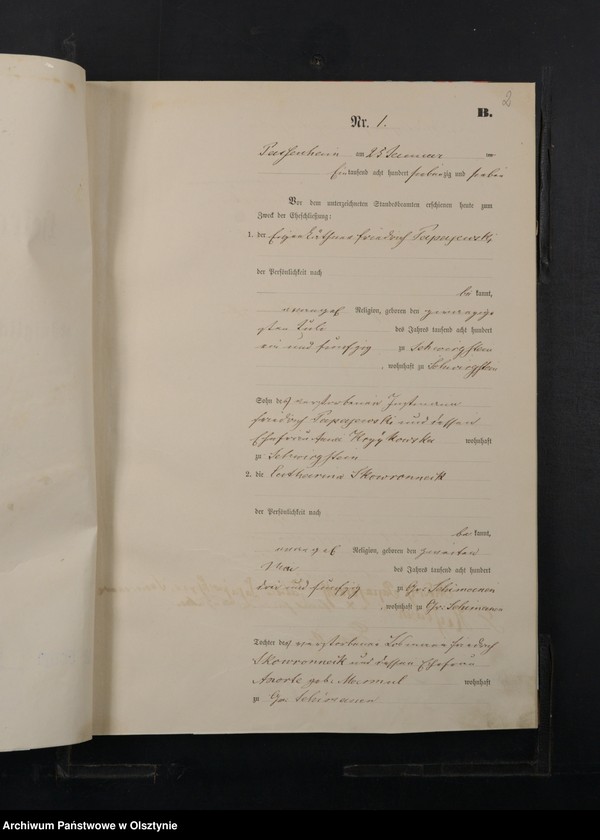 2
B.
Nr. 1.
Passenheim am 25 Januar
Eintausend acht hundert siebenzig und sieben
Vor dem unterzeichneten Standesbeamten erschienen heute zum
Zweck der Eheschließung:
1. der Friedrich Papajewski
der Persönlichkeit nach
bekannt,
evangel Religion, geboren den
gten Juli des Jahres tausend acht hundert
ein und fünfzig zu Schwirgstein
, wohnhaft zu Schwirgstein
Sohn des verstorbenen Instmann
Friedrich Papajewski und dessen
Ehefrau Anna wohnhaft
zu Schwirgstein
2. die Catharina Skowronneik
der Persönlichkeit nach
bekannt,
evangel Religion, geboren den zweiten
Mai des Jahres tausend acht hundert
drei und fünfzig zu Gr. Schimanen
, wohnhaft zu Gr. Schimanen
Tochter des verstorbenen Friedrich
Skowronneik und dessen Ehefrau
geb. wohnhaft
zu Gr. Schimanen
Archiwum Państwowe w Olsztynie